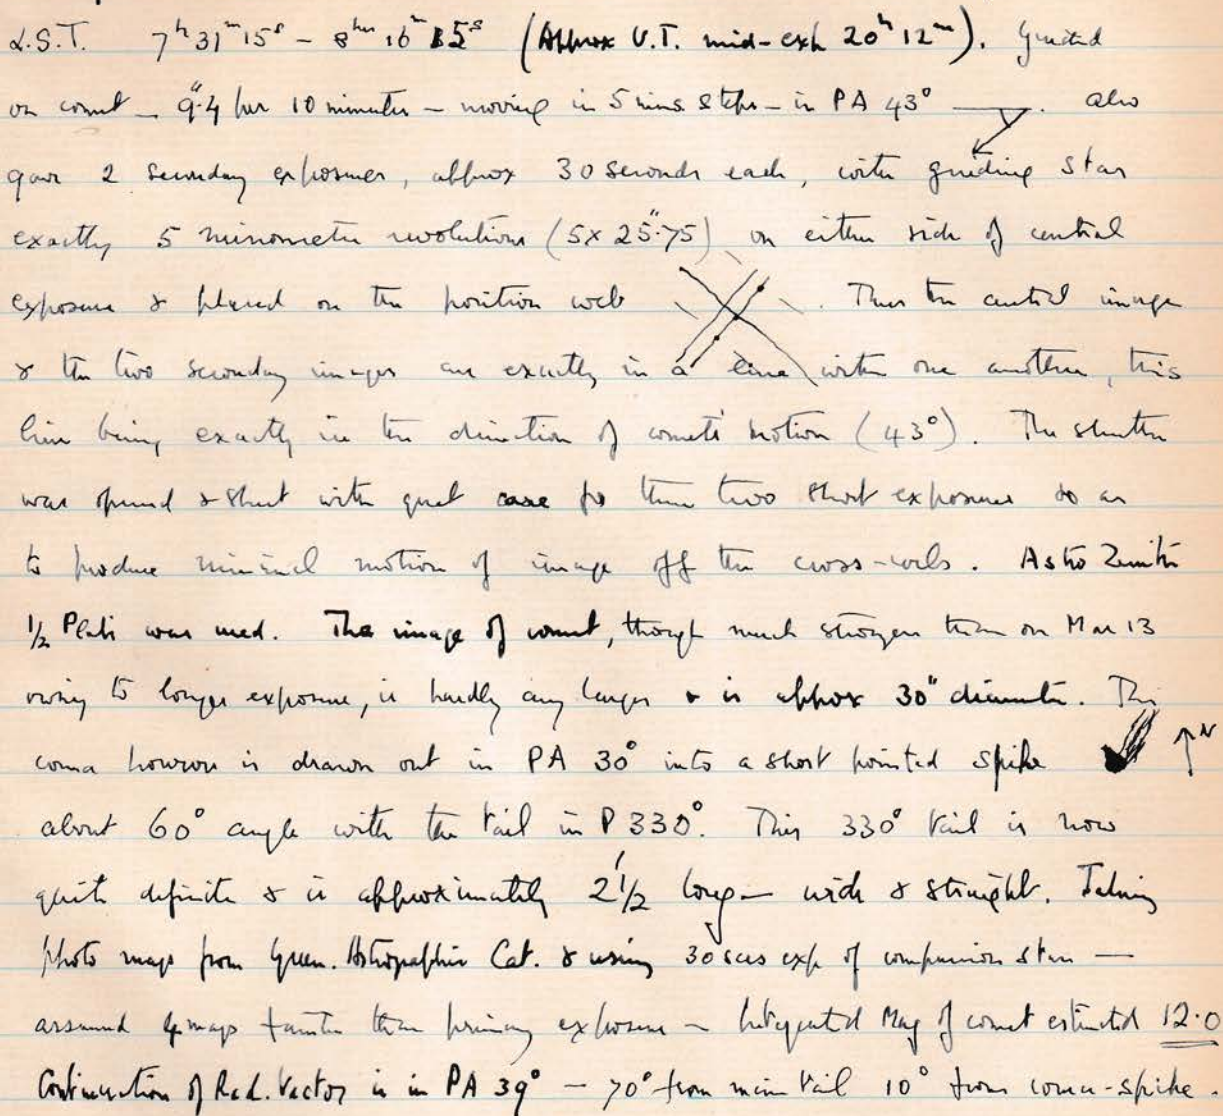 L.S.T. 7ʰ 31ᵐ 15ˢ – 8ʰʳ 16ᵐ 15ˢ (Approx U.T. mid-exp 20ʰ 12ᵐ). Guided
on comet – 9″.4 per 10 minutes – moving in 5 mins steps – in PA 43° . Also
gave 2 secondary exposures, approx 30 seconds each, with guiding star
exactly 5 micrometer revolutions (5 x 25″.75) on either side of central
exposure & placed on the position web . Thus the central image
& the two secondary images are exactly in a line with one another, this
line being exactly in the direction of comet's motion (43°). The shutter
was opened & shut with great care for these two short exposures so as
to produce minimal motion of image off the cross-webs. Astro Zenith
1/2 Plate was used. The image of comet, though much stronger than on Mar 13
owing to longer exposure, is hardly any larger & is approx 30" diameter. The
coma however is drawn out in PA 30° into a short pointed spike N
about 60° angle with the tail in P 330°. This 330° tail is now
quite definite & is approximately 2′1/2 long – wide & straight. Taking
photo mags from Green. Astrographic Cat. & using 30 secs exp of comparison stars –
assumed 4 mags fainter than primary exposure – Integrated Mag of comet estimated 12.0
Continuation of Rad. Vector is in PA 39° – 70° from main tail 10° from coma-spike.